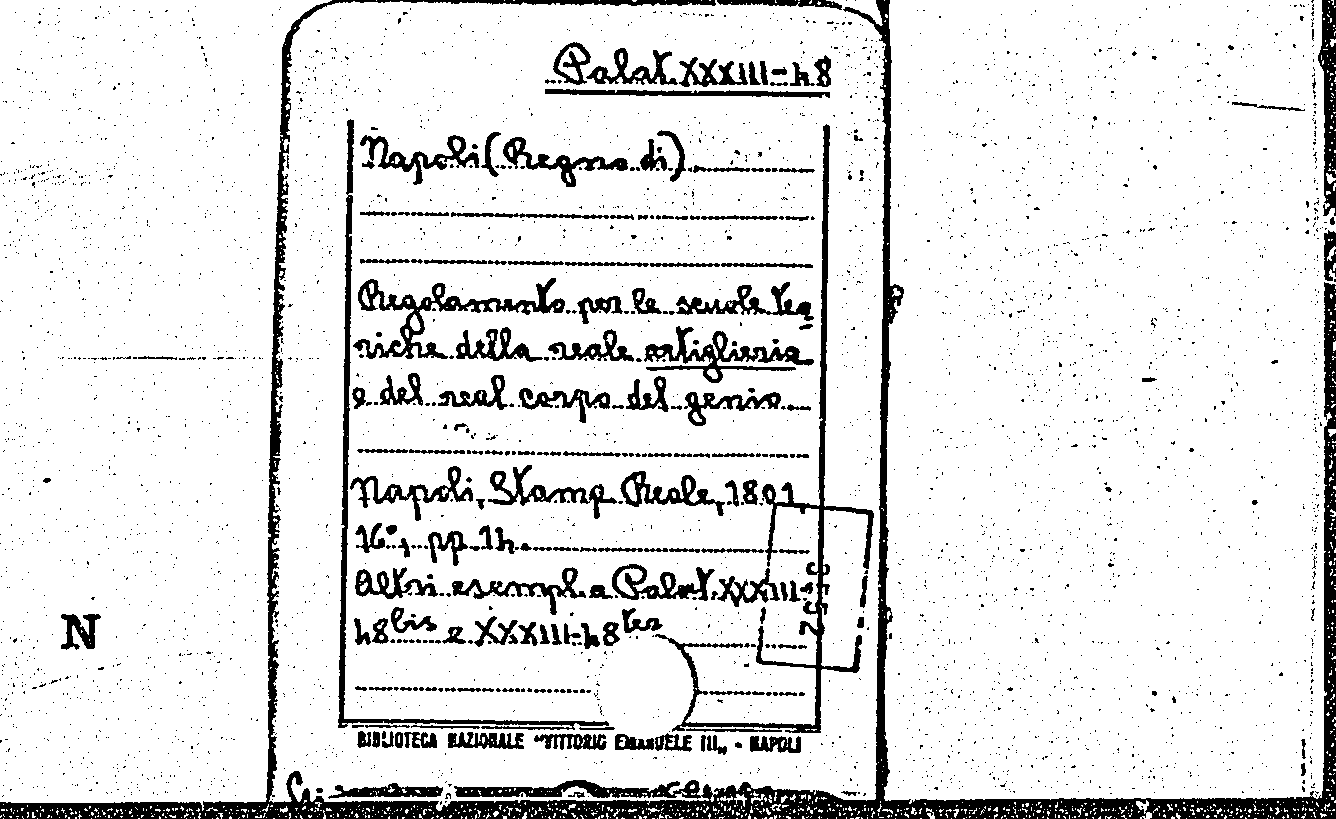 Palat. XXXIII-48
Napoli (Regno di)
Regolamento per le scuole teo
riche della reale artiglieria
e del real corpo del genio.
Napoli, Stamp. Reale, 1801,
16°, pp. 14.
Altri esempl. a Palat. XXXIII-
48bis e XXXIII-48ter
N
BIBLIOTECA NAZIONALE "VITTORIO EMANUELE III„ - NAPOLI